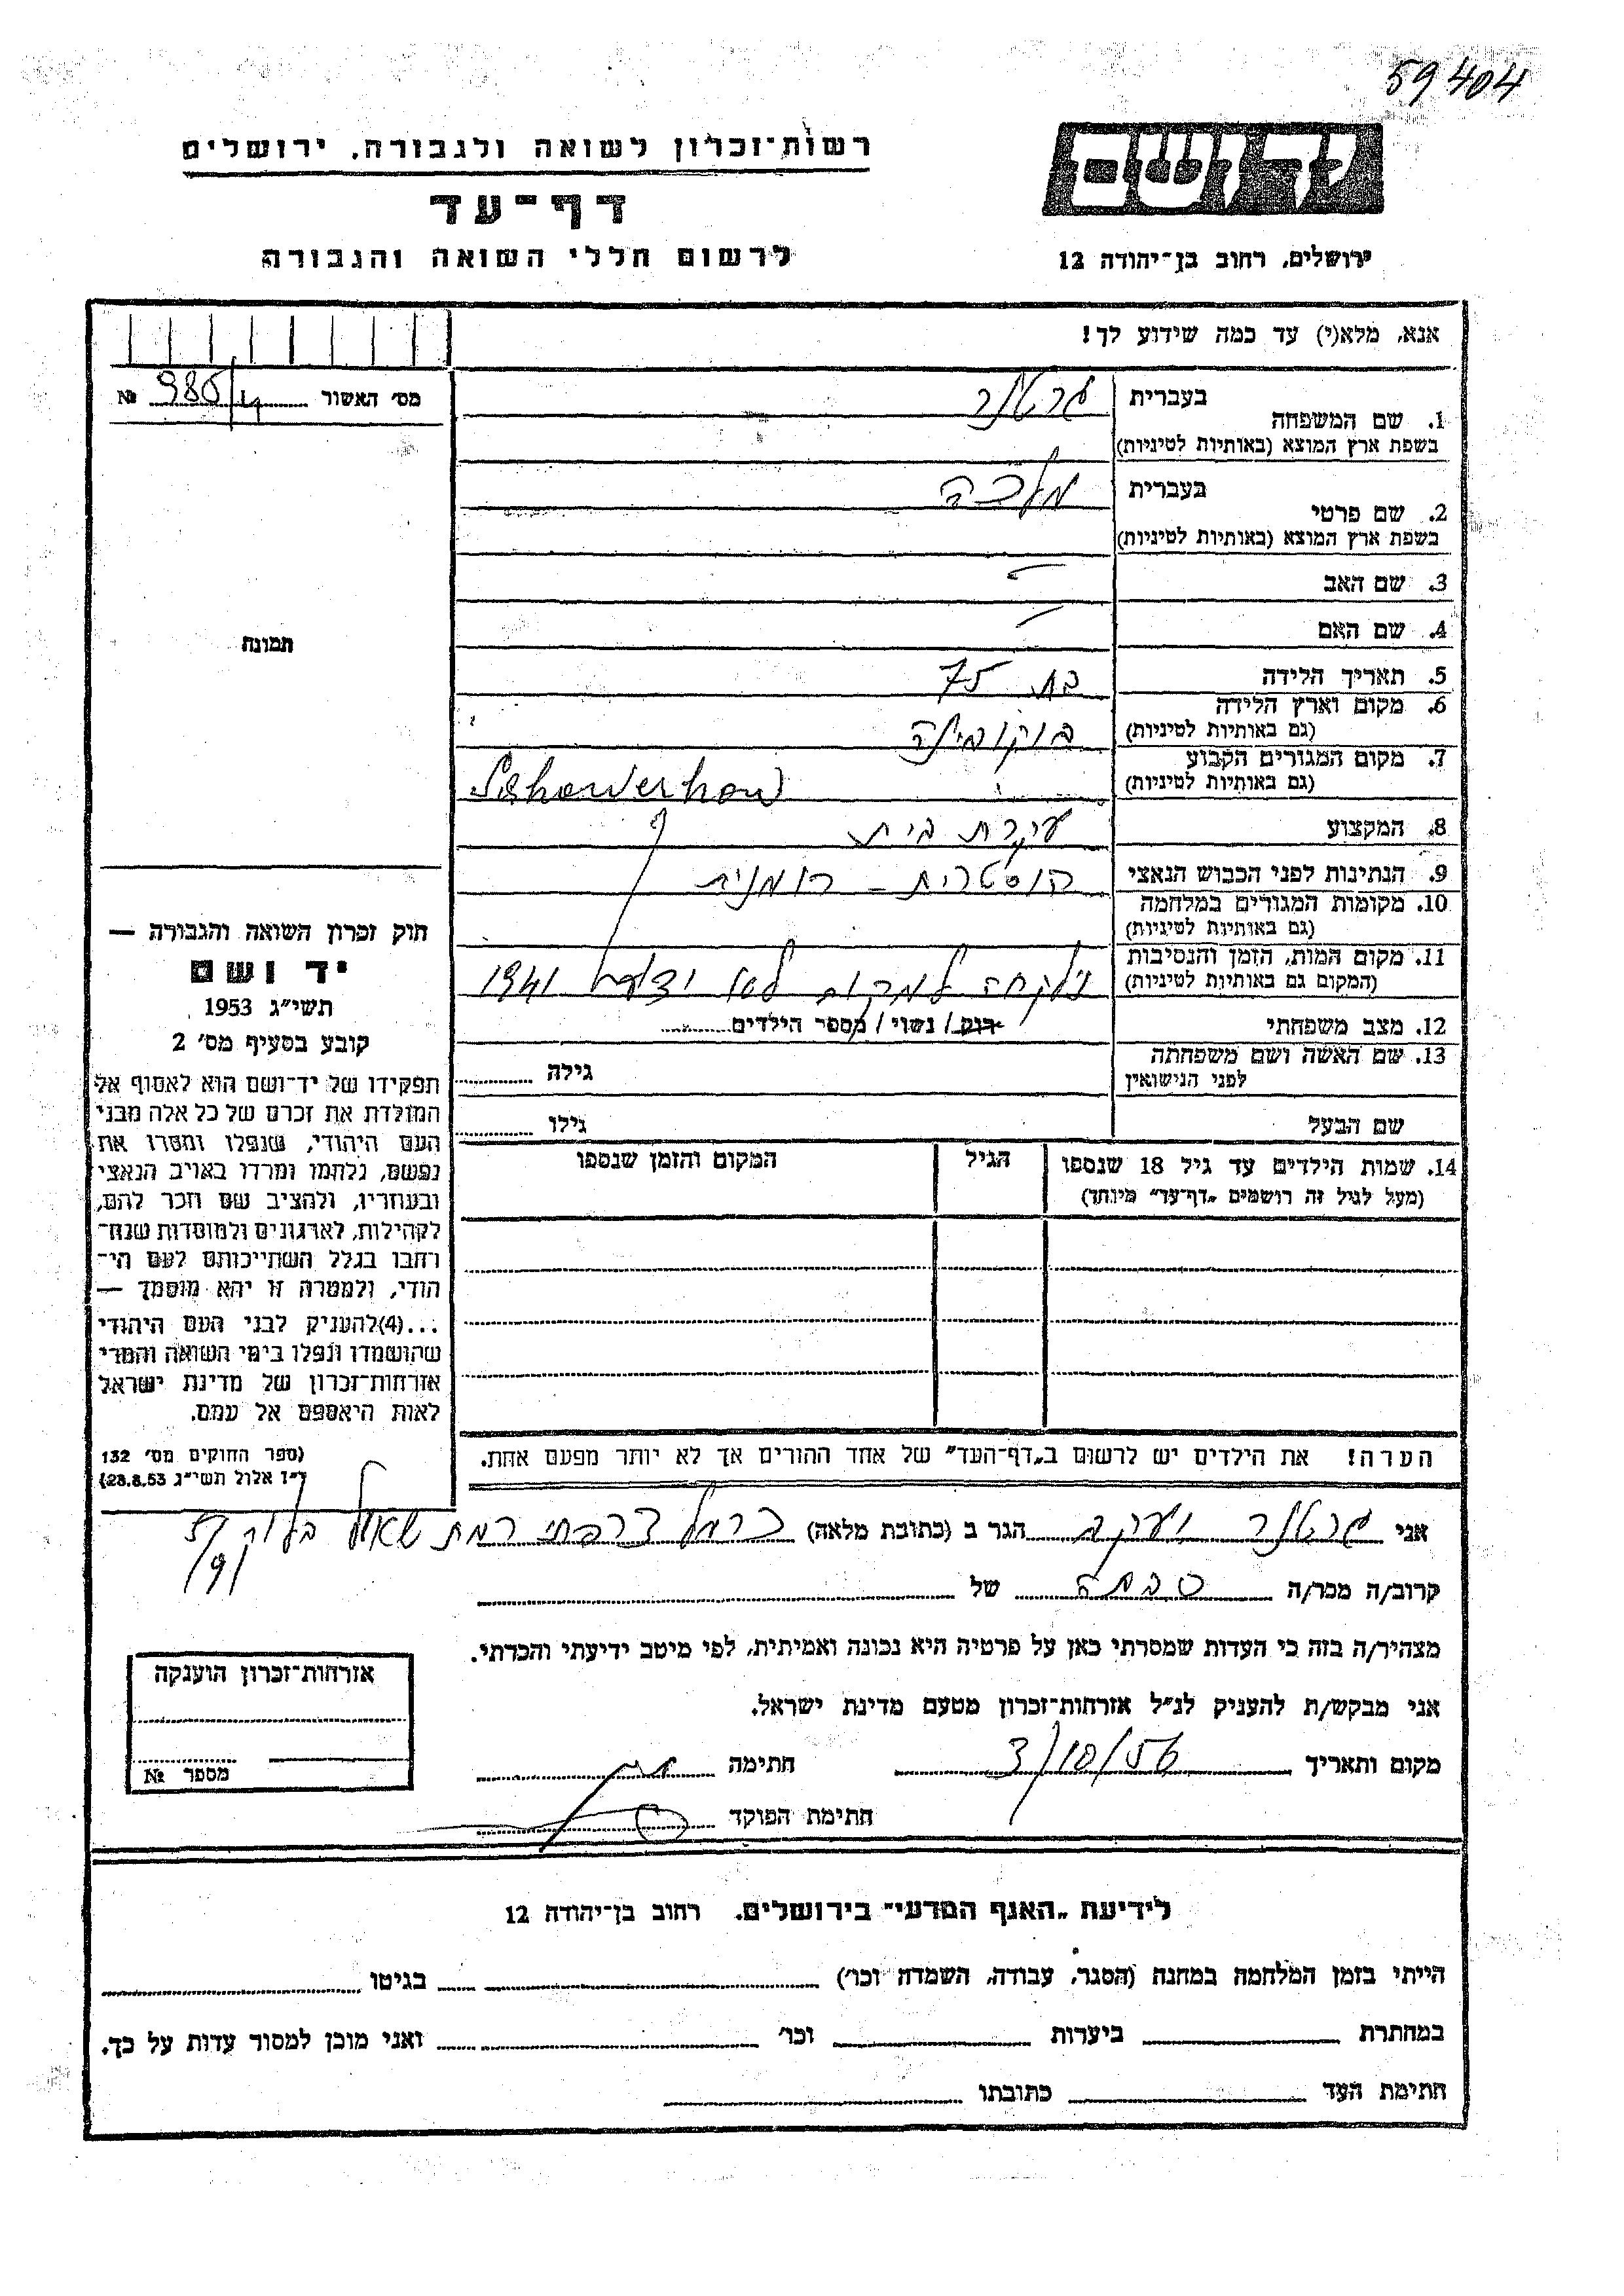 59404
רשות־זכרון לשואה ולגבורה, ירושלים
דף־עד
לרשום חללי השואה והגבורה
יד ושם
ירושלים, רחוב בן־יהודה 12
אנא, מלא(י) עד כמה שידוע לך!
מס׳ האשור № 986/4
תמונה
חוק זכרון השואה והגבורה —
יד ושם
תשי״ג 1953
קובע בסעיף מס׳ 2
תפקידו של יד־ושם הוא לאסוף אל
המולדת את זכרם של כל אלה מבני
העם היהודי, שנפלו ומסרו את
נפשם, נלחמו ומרדו באויב הנאצי
ובעוזריו, ולהציב שם וזכר להם,
לקהילות, לארגונים ולמוסדות שנח־
רבו בגלל השתייכותם לעם הי־
הודי, ולמטרה זו יהא מוסמך —
...(4) להעניק לבני העם היהודי
שהושמדו ונפלו בימי השואה והמרי
אזרחות־זכרון של מדינת ישראל
לאות היאספם אל עמם.
(ספר החוקים מס׳ 132
י״ז אלול תשי״ג 28.8.53)
בעברית גרטנר
1. שם המשפחה
בשפת ארץ המוצא (באותיות לטיניות)
בעברית מלכה
2. שם פרטי
בשפת ארץ המוצא (באותיות לטיניות)
3. שם האב —
4. שם האם —
5. תאריך הלידה בת 75
6. מקום וארץ הלידה
(גם באותיות לטיניות) בוקובינה
7. מקום המגורים הקבוע
(גם באותיות לטיניות)
8. המקצוע עקרת בית
9. הנתינות לפני הכבוש הנאצי אוסטרית - רומנית
10. מקומות המגורים במלחמה
(גם באותיות לטיניות)
11. מקום המות, הזמן והנסיבות
(המקום גם באותיות לטיניות) נלקחה למקום לא ידוע 1941
12. מצב משפחתי רווק / נשוי / מספר הילדים
13. שם האשה ושם משפחתה
לפני הנישואין גילה
שם הבעל גילו
14. שמות הילדים עד גיל 18 שנספו הגיל המקום והזמן שנספו
(מעל לגיל זה רושמים „דף־עד״ מיוחד)
הערה! את הילדים יש לרשום ב„דף־העד״ של אחד ההורים אך לא יותר מפעם אחת.
אני גרטנר יעקב הגר ב (כתובת מלאה) כרמל צרפתי רמת שאול בלוק 57
/9/
קרוב/ה מכר/ה סבתה של
מצהיר/ה בזה כי העדות שמסרתי כאן על פרטיה היא נכונה ואמיתית, לפי מיטב ידיעתי והכרתי.
אני מבקש/ת להעניק לנ״ל אזרחות־זכרון מטעם מדינת ישראל.
מקום ותאריך 3/10/56 חתימה
חתימת הפוקד
אזרחות־זכרון הוענקה
מספר №
לידיעת „האגף המדעי״ בירושלים, רחוב בן־יהודה 12
הייתי בזמן המלחמה במחנה (הסגר, עבודה, השמדה וכו׳) בגיטו
במחתרת ביערות וכו׳ ואני מוכן למסור עדות על כך.
חתימת העד כתובתו